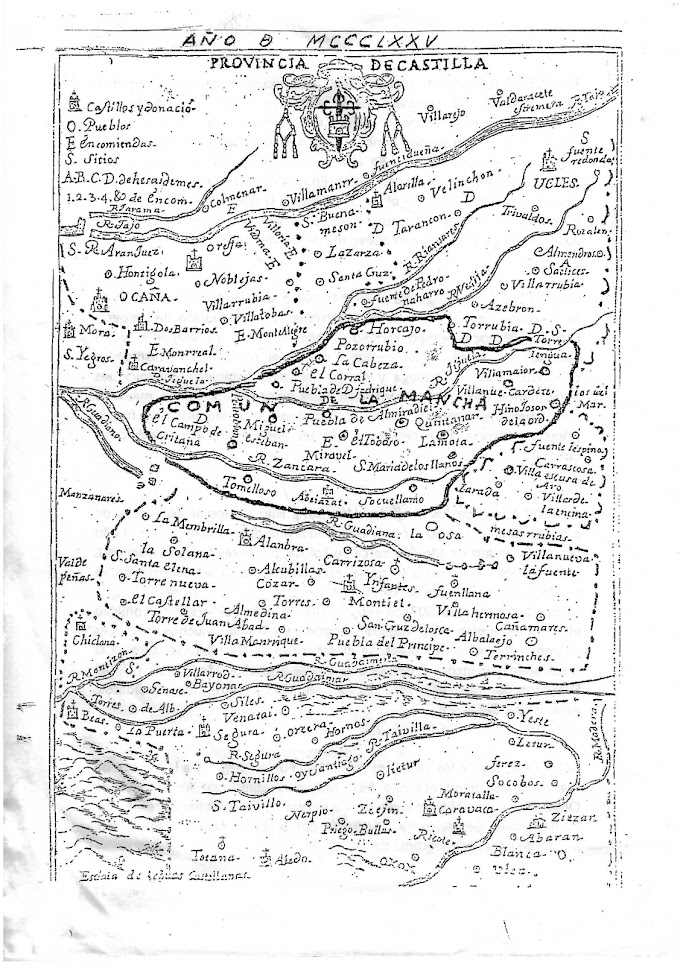 AÑO D MCCCLXXV
PROVINCIA DE CASTILLA
Castillos y donació
O. Pueblos
E Encomiendas
S. Sitios
A.B.C.D. dehesas demes.
1.2.3.4. &o de Encom.
Villarejo
Valdaracete
Estremera
R. Tajo
S
fuente
redonda
fuentidueña
Villamanrr.
Colmenar
E
R. Tarama
R. Tajo
Alarilla
Velinchon
D
UCLES
S. Buena
meson
D Tarancon
Trivaldos
Rozalen
S. R. Aranjuez
Oreja
Lazarza
R. Rianzares
Almendros
A
Saelices
Hontigola
Noblejas
Santa Cruz
fuente de Pedro
naharro
Villarrubia
OCAÑA
Villarrubia
Azebron
Villatobas
Mora
Dos Barrios
E. Monte Alegre
Horcajo
Torrubia D. S
D D Torre
luenga
S. Yegros
E. Monrreal
Caravanchel
Pozorrubio
La Cabeza
El Corral
R. Jiguela
Villamaior
Jiguela
Puebla de D fadrique
Villanue. Cardete
COMUN DE LA MANCHA
R. Guadiana
D
el Campo de
Critana
Miguel
esteban
Puebla de Almiradiel
Quintanar
Hinojosos
de la ord.
E
Miravel
el Toboso
Lamota
fuente lespino
R. Zancara
S. Maria de los llanos
Carrascosa
Villaescusa de
Aro
Manzanares
Tomelloso
Socuellamo
Villar de
la encina
mesas rrubias
R. Guadiana
La Membrilla
Alanbra
la Osa
la Solana
Carrizosa
Villanueva
la fuente
Valde
peñas
S. Santa elena
Alcubillas
Torre nueva
Cózar
Ynfantes
fuenllana
el Castellar
Torres
Montiel
Villa hermosa
Torre de Juan Abad
Almedina
San Cruz delosca.
Cañamares
Chiclana
Villa Manrrique
Puebla del Principe
Albaladejo
Terrinches
R. Montizon
S
R. Guadalmena
Villarrod.
R. Guadalmar
Génave
Bayona
Torres de Alb.
Siles
Beas
La Puerta
Venatai
Segura
Orzera
Hornos
R. Taivilla
Yeste
Letur
R. Madera
R. Segura
Hornillos oy Santiago
Lietur
ferez
Socobos
S. Taivillo
Nerpio
Zeejin
Moratalla
Caravaca
Priego
Bullas
Ricote
Ziezar
Abaran
Blanca
Totana
Aledo
OXOX
Ulea
Escala de Leguas Castellanas